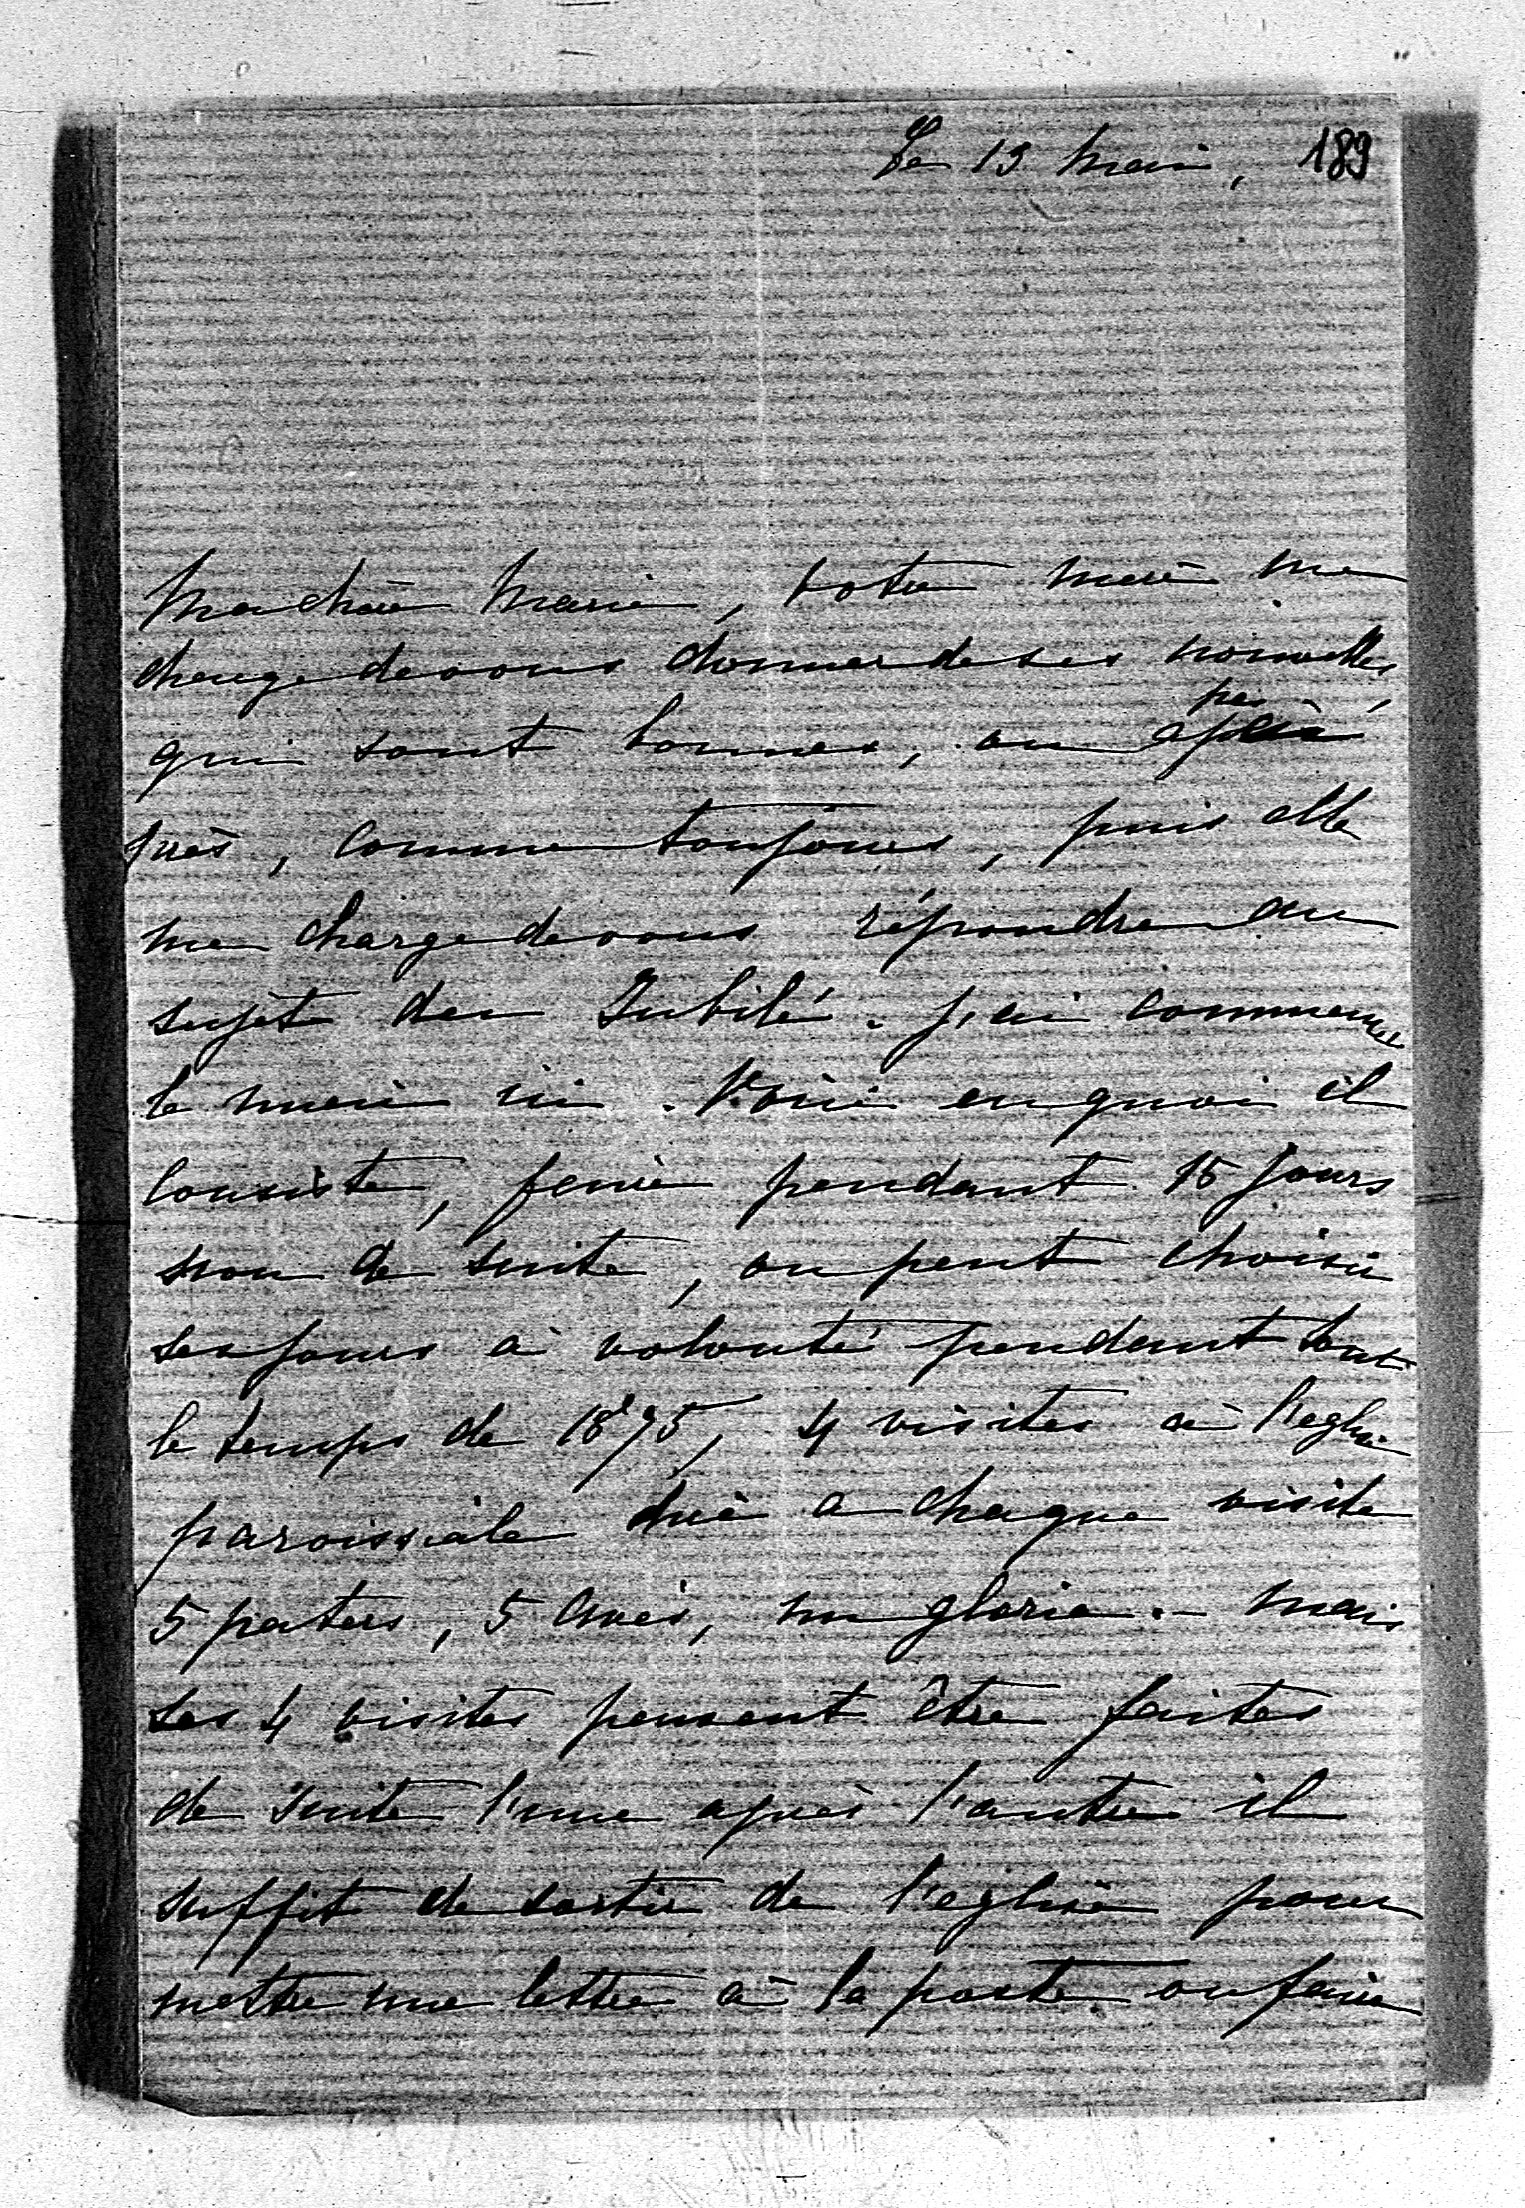 Le 13 mai, 189
Ma chère Marie, votre mère me
charge de vous donner de ses nouvelles,
qui sont bonnes, ou peu
près, comme toujours, puis elle
me charge de vous répondre au
sujet du Jubilé. j'ai commencé
le mien ici. Voici en quoi il
consiste, faire pendant 15 jours
non de suite, on peut choisir
ses jours à volonté pendant tout
le temps de 1875, 4 visites à l'eglise
paroissiale dire a chaque visite
5 paters, 5 avés, un gloria. - Mais
ses 4 visites peuvent être faites
de suite l'une après l'autre il
suffit de sortir de l'eglise pour
mettre une lettre à la poste ou faire